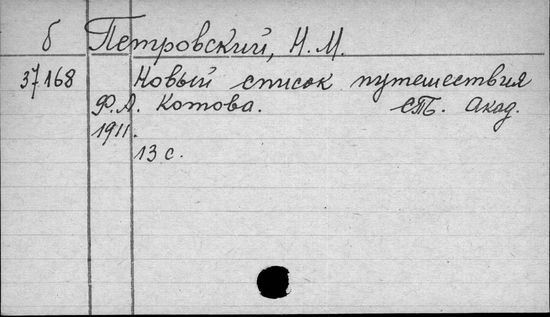 б Петровский, Н. М.
37168 Новый список путешествия
Ф. А. Котова. СПб. Акад.
1911.
13 с.